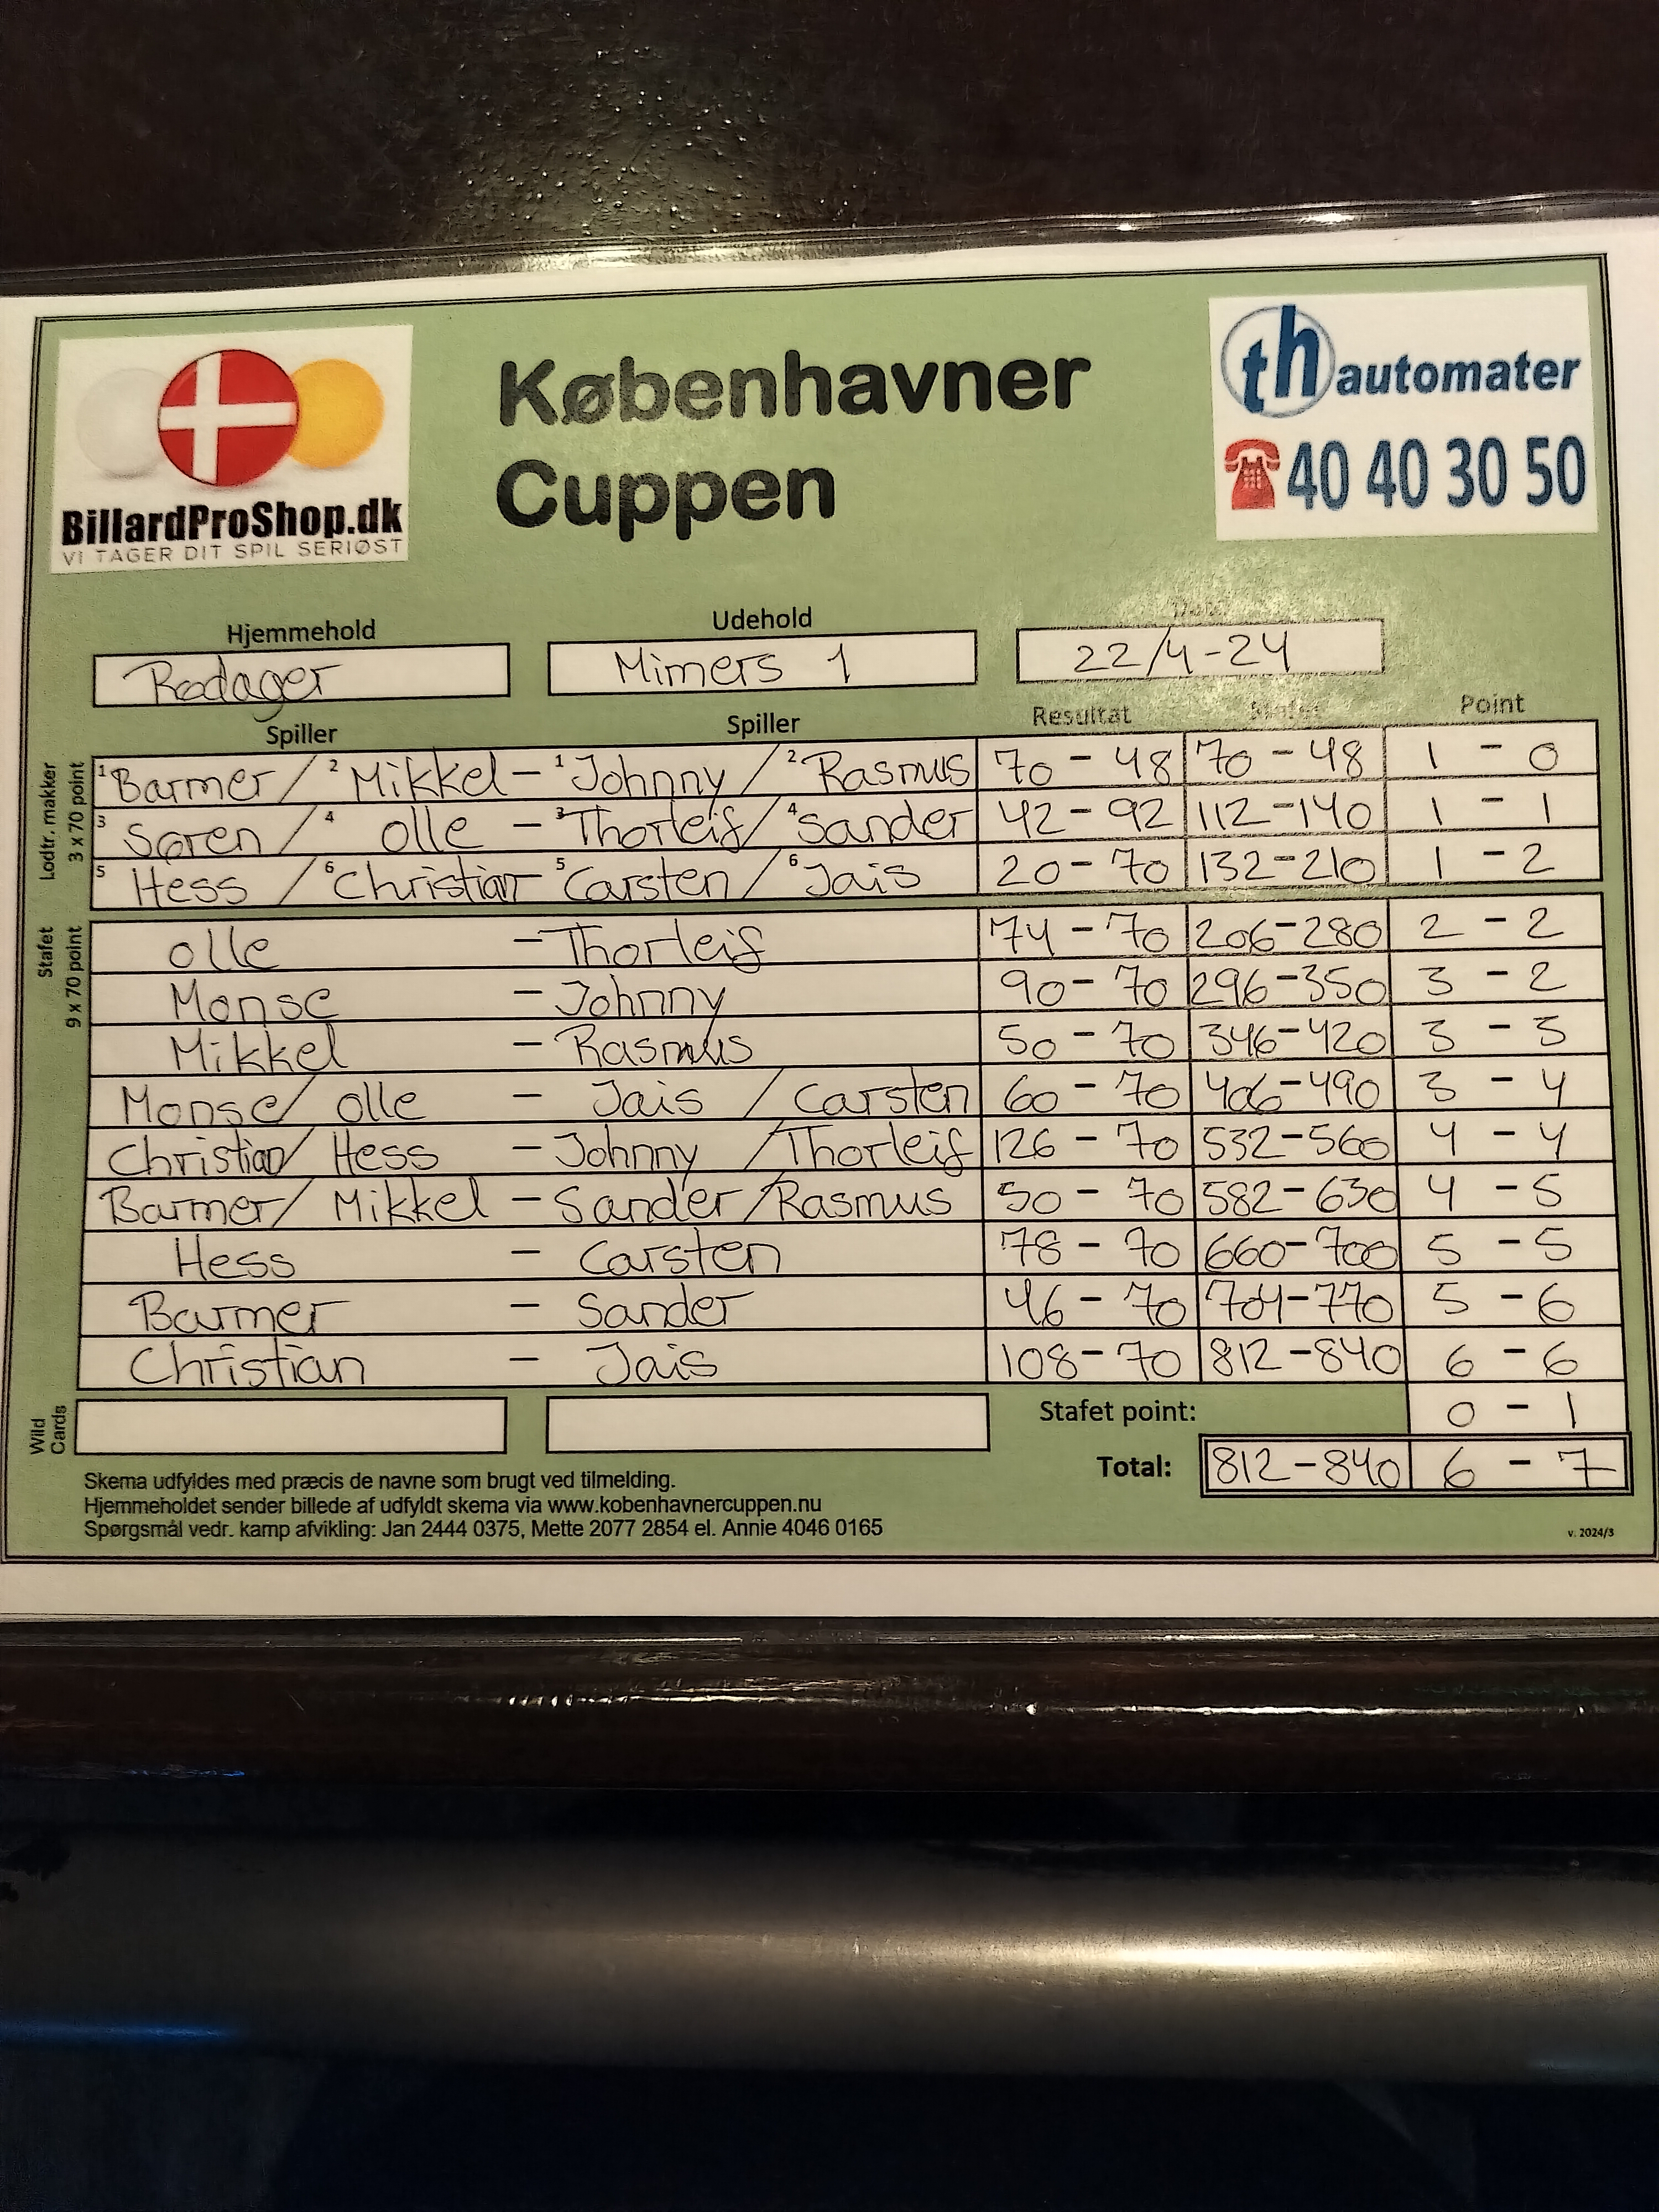 Københavner
Cuppen
BillardProShop.dk
VI TAGER DIT SPIL SERIØST
th automater
40 40 30 50
Hjemmehold Udehold Dato
Rødager Mimers 1 22/4-24
Spiller Spiller Resultat Stafet Point
Lodtr. makker
3 x 70 point
1 Barmer / 2 Mikkel - 1 Johnny / 2 Rasmus 70 - 48 70 - 48 1 - 0
3 Søren / 4 Olle - 3 Thorleif / 4 Sander 42 - 92 112 - 140 1 - 1
5 Hess / 6 Christian - 5 Carsten / 6 Jais 20 - 70 132 - 210 1 - 2
Stafet
9 x 70 point
Olle - Thorleif 74 - 70 206 - 280 2 - 2
Monse - Johnny 90 - 70 296 - 350 3 - 2
Mikkel - Rasmus 50 - 70 346 - 420 3 - 3
Monse / Olle - Jais / Carsten 60 - 70 406 - 490 3 - 4
Christian / Hess - Johnny / Thorleif 126 - 70 532 - 560 4 - 4
Barmer / Mikkel - Sander / Rasmus 50 - 70 582 - 630 4 - 5
Hess - Carsten 78 - 70 660 - 700 5 - 5
Barmer - Sander 46 - 70 704 - 770 5 - 6
Christian - Jais 108 - 70 812 - 840 6 - 6
Wild
Cards
Stafet point: 0 - 1
Total: 812 - 840 6 - 7
Skema udfyldes med præcis de navne som brugt ved tilmelding.
Hjemmeholdet sender billede af udfyldt skema via www.kobenhavnercuppen.nu
Spørgsmål vedr. kamp afvikling: Jan 2444 0375, Mette 2077 2854 el. Annie 4046 0165
v. 2024/3